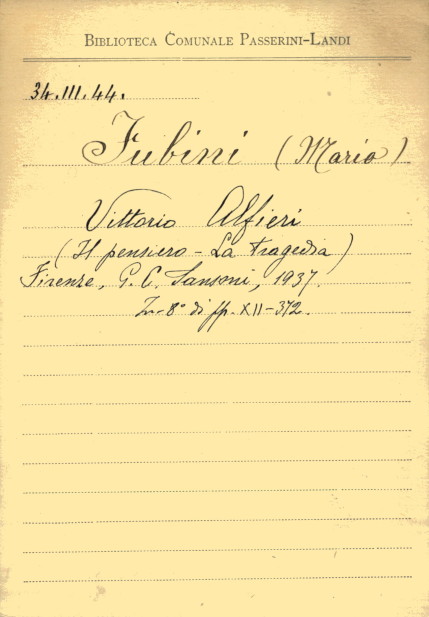 BIBLIOTECA COMUNALE PASSERINI-LANDI
34.III.44.
Fubini (Mario)
Vittorio Alfieri
(Il pensiero - La tragedia)
Firenze, G. C. Sansoni, 1937.
In-8° di pp. XII-372.